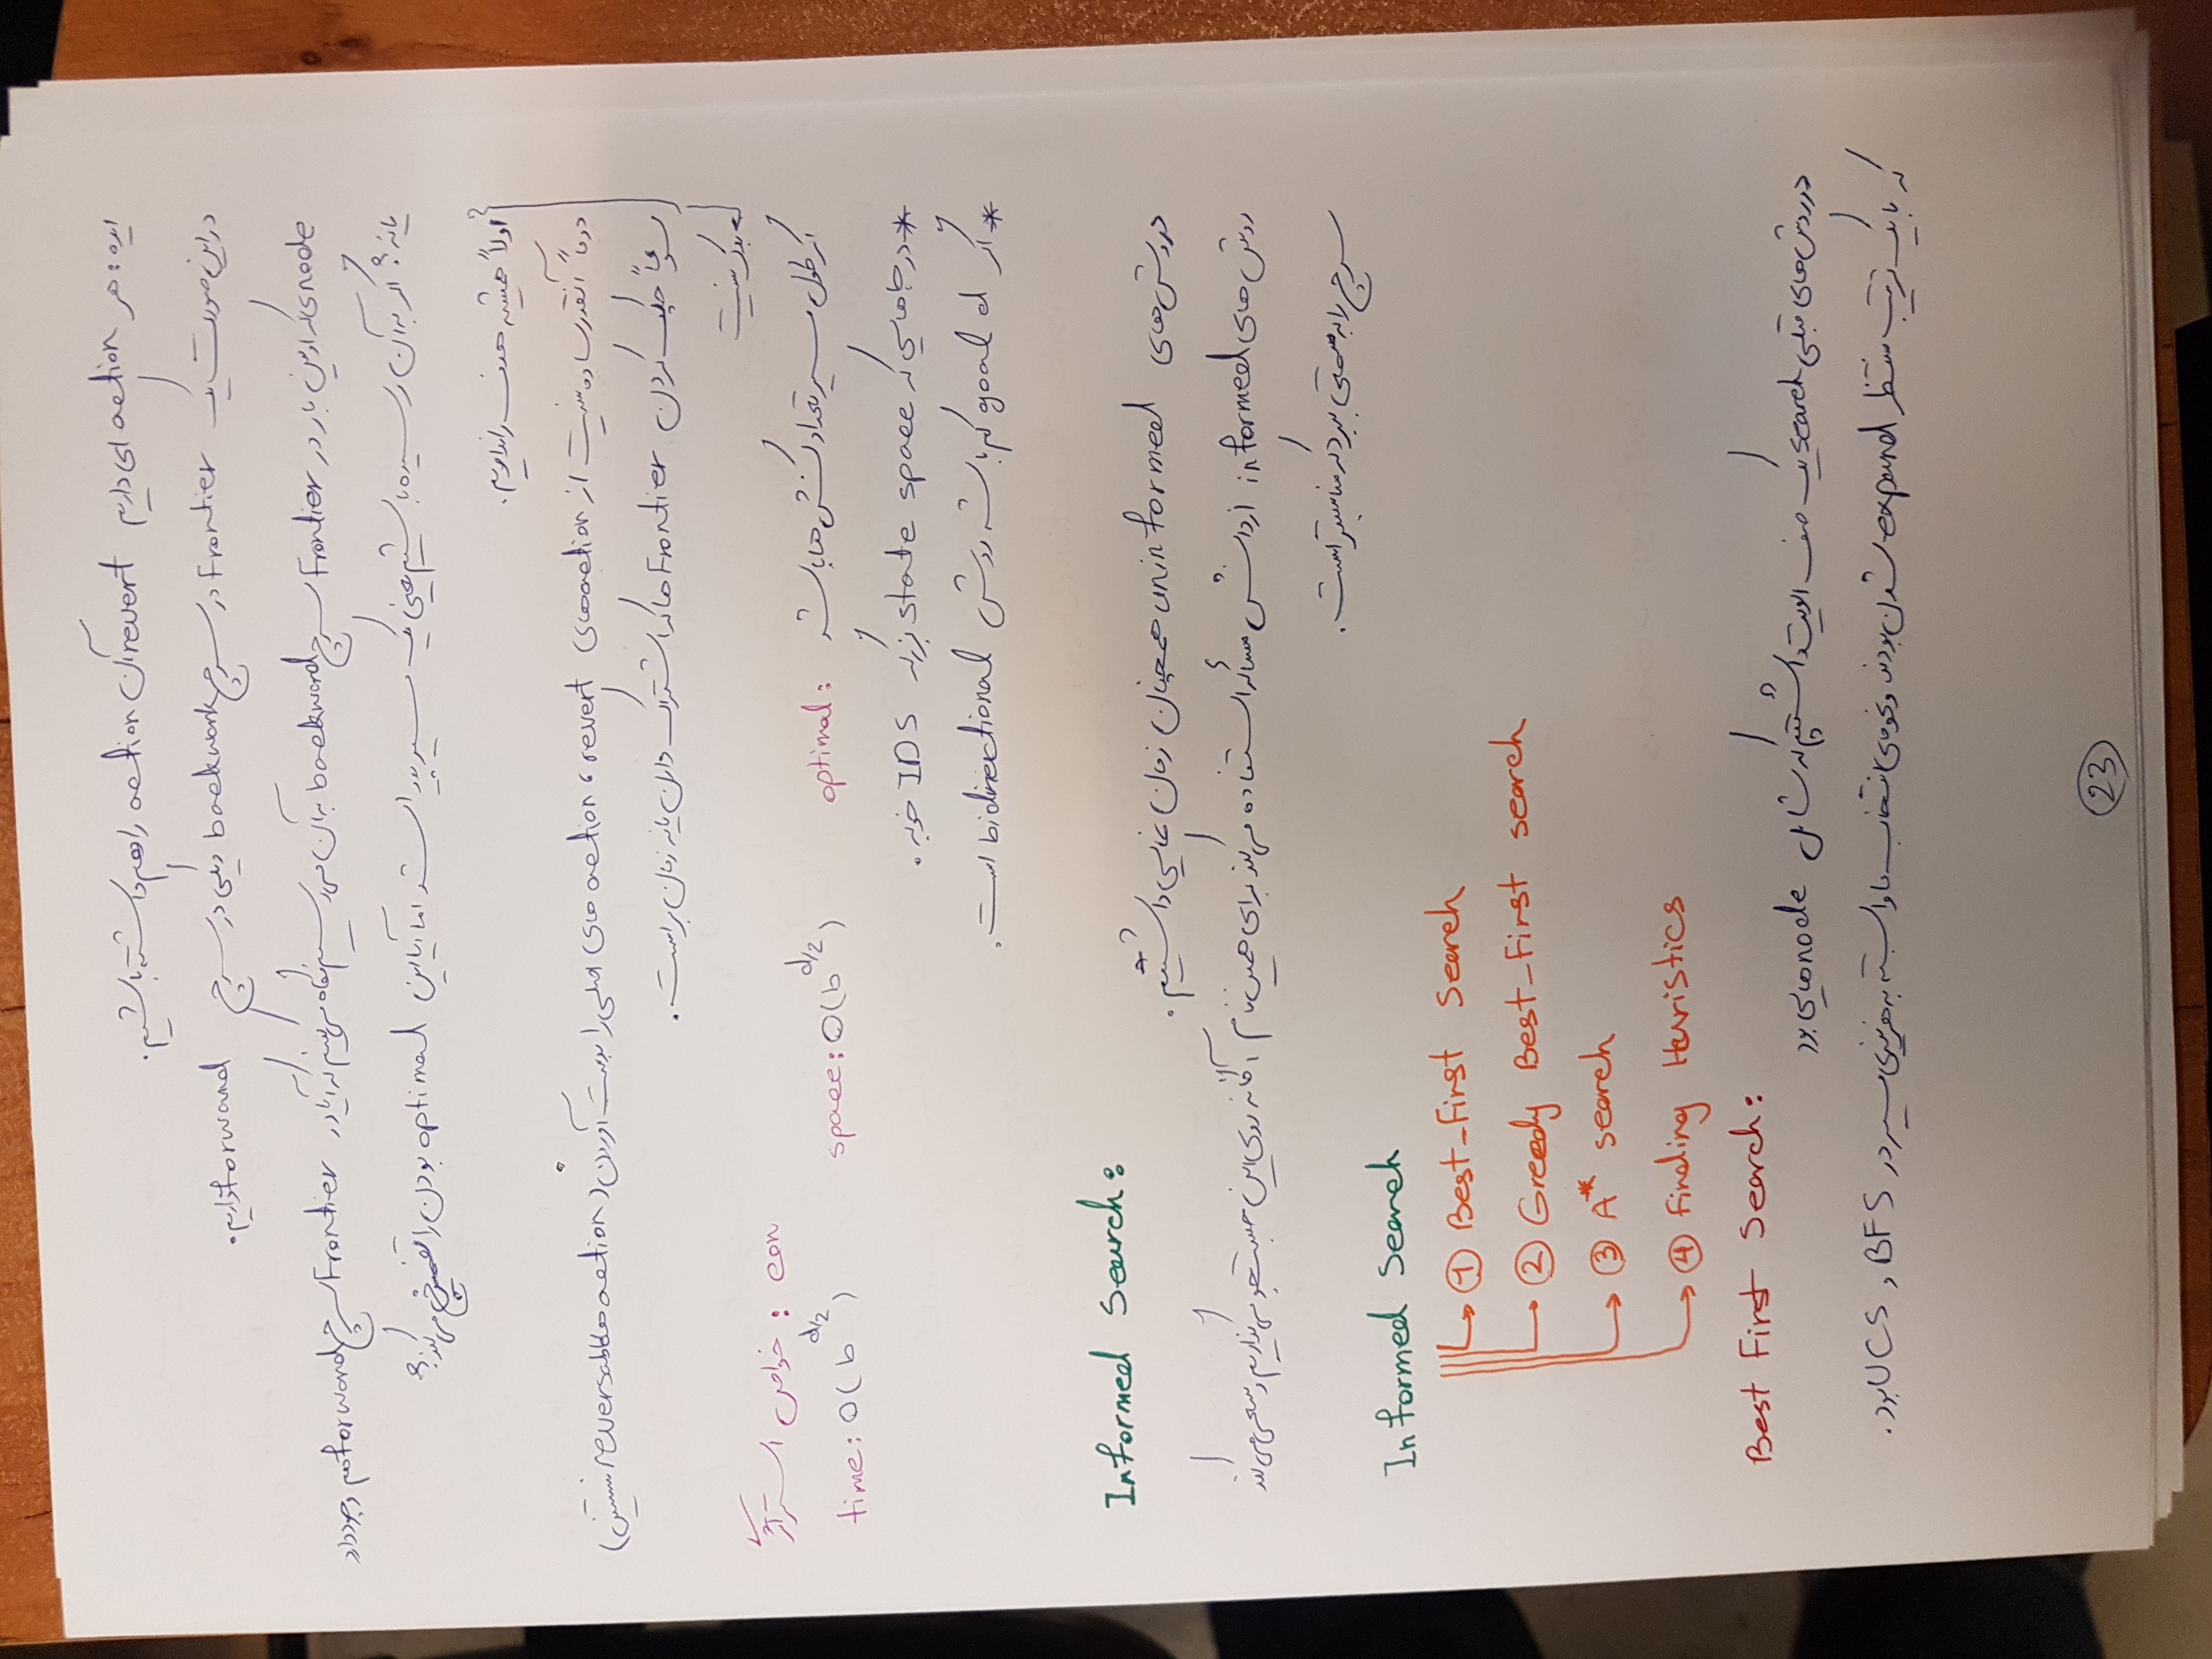 ایده: هر action ای داریم revert آن action را هم داشته باشیم.
در این صورت یک Frontier در سرچ backword و یکی در سرچ forward داریم.
node ی که اولین بار در Frontier سرچ backword به آن می‌رسیم نگاه می‌کنیم که آیا در Frontier سرچ forword هم وجود دارد
یا نه؟ اگر به آن رسیده باشیم یعنی یک مسیر پیدا شد اما آیا این optimal بودن را تضمین می‌کند؟
اولاً همیشه هدف را نداریم.
دوماً آنقدر ساده نیست از action های revert، action های اصلی را بدست آوردن (action ها reversable نیستن)
سوماً چک کردن Frontier ها که اشتراک دارن یا نه زمان بر است.
بدک نیست
خواص استراتژی: con
optimal: اگر طول مسیر تعداد کنش ها باشد
space: O(b^d/2)
time: O(b^d/2)
* در جاهایی که state space بزرگه IDS خوبه.
* اگر goal کم باشه روش bidirectional است.
Informed Search:
در روش های uninformed همچنان زمان نمایی داشتیم.
روش های informed از دانش مسأله استفاده می‌کند برای همین نام آگانه روی این جستجو می‌گذاریم و سعی می‌کند
سرچ را به سمتی ببرد که مناسبتر است.
Informed Search
① Best-First Search
② Greedy Best-First search
③ A* search
④ Finding Huristics
Best First Search:
در روش های قبلی search یک صف الویت داشتیم که شامل node هایی بود
که با یک ترتیب منتظر expand شدن بودند و نحوه‌ی انتخاب ما وابسته به هزینه‌ی مسیر در BFS و UCS بود.
23